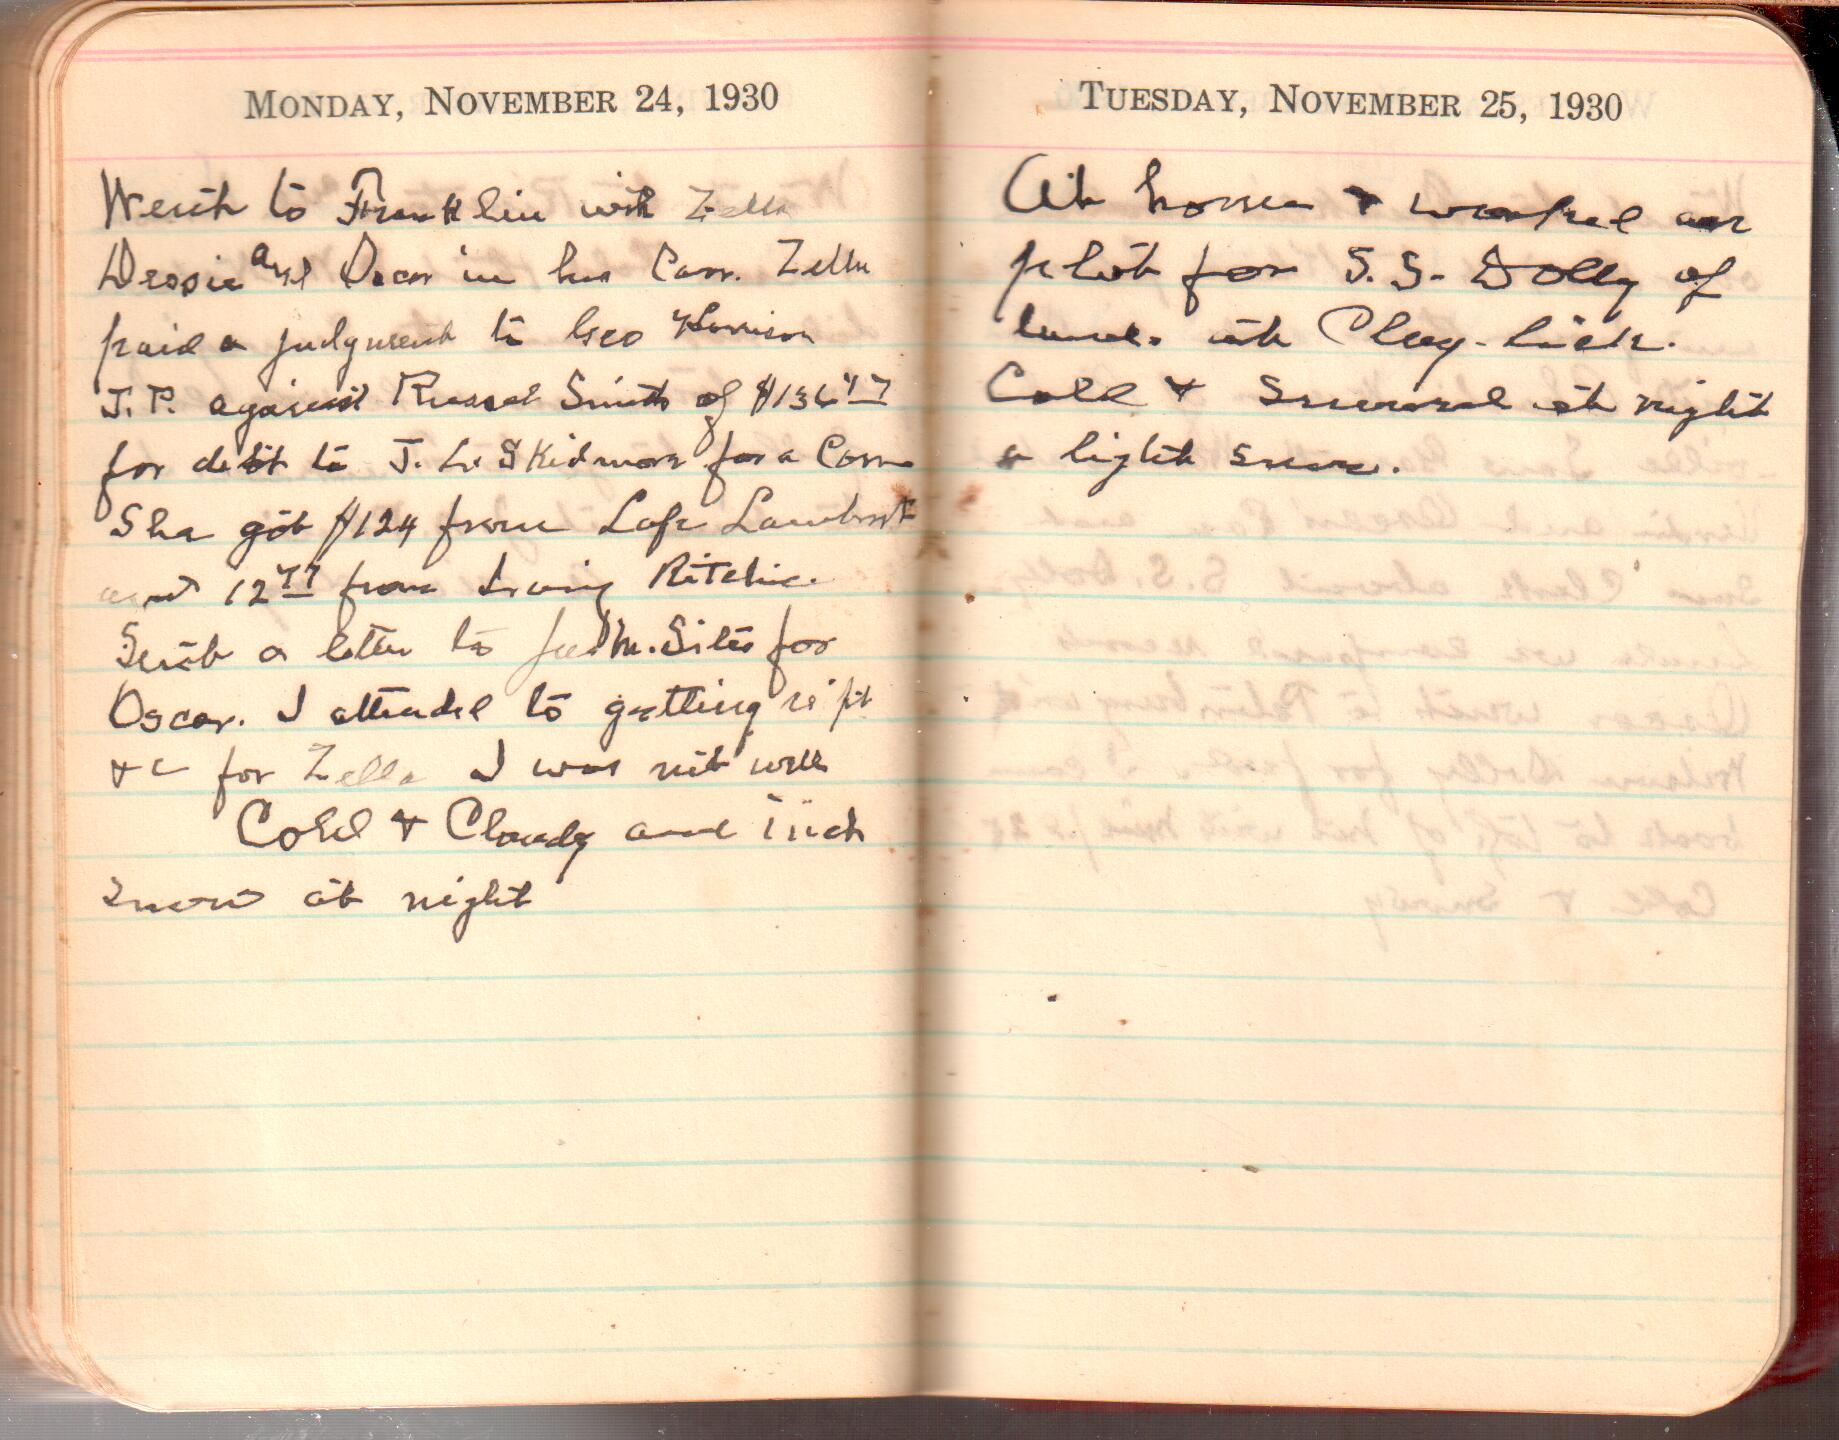 MONDAY, NOVEMBER 24, 1930
Went to Franklin with Zella
Dessie and Oscar in his Car. Zella
paid a judgment to Geo Harrison
J. P. against Russel Smith of $136 47
for debt to J. L. Skidmore for a Cow
Sha got $124 from Lafe Lambert
and 12 47 from Irving Ritchie.
Sent a letter to M. Sites for
Oscar. I attended to getting re'pt
&c for Zella I was not well
Cold & Cloudy and inch
snow at night
TUESDAY, NOVEMBER 25, 1930
At home & worked on
plot for S. S. Dolly of
land. at Clay-Lick.
Cold & Snowed at night
a light snow.